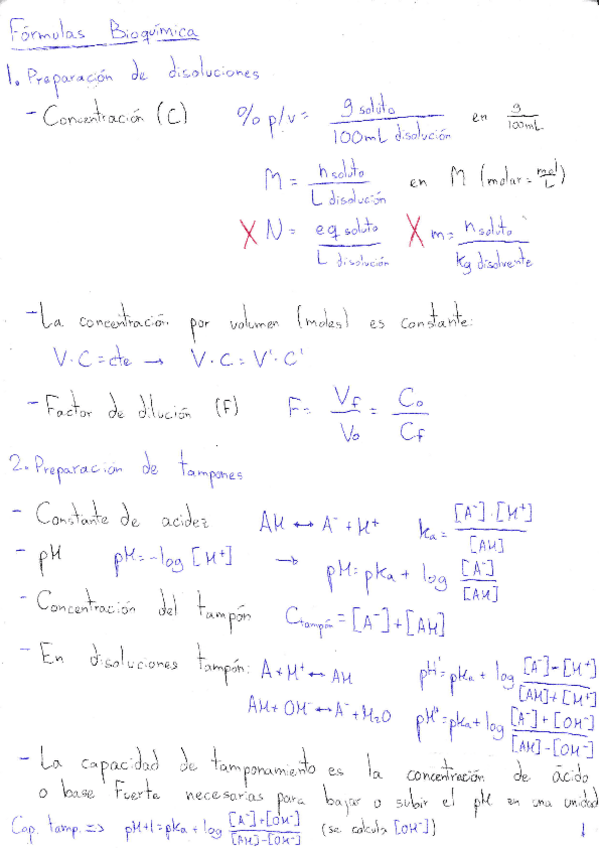 Fórmulas Bioquímica
1. Preparación de disoluciones
- Concentración (C) % p/v = g soluto / 100mL disolución en g/100mL
M = n soluto / L disolución en M (molar = mol/L)
X N = eq soluto / L disolución X m = n soluto / kg disolvente
- La concentración por volumen (moles) es constante:
V·C = cte → V·C = V'·C'
- Factor de dilución (F) F = Vf/Vo = Co/Cf
2. Preparación de tampones
- Constante de acidez AH ↔ A⁻ + H⁺ ka = [A⁻]·[H⁺] / [AH]
- pH pH = -log [H⁺] → pH = pka + log [A⁻]/[AH]
- Concentración del tampón Ctampón = [A⁻] + [AH]
- En disoluciones tampón: A + H⁺ ↔ AH pH' = pka + log [A⁻]-[H⁺] / [AH]+[H⁺]
AH + OH⁻ ↔ A⁻ + H₂O pH'' = pka + log [A⁻]+[OH⁻] / [AH]-[OH⁻]
- La capacidad de tamponamiento es la concentración de ácido
o base fuerte necesarias para bajar o subir el pH en una unidad
Cap. tamp. => pH+1 = pka + log [A⁻]+[OH⁻] / [AH]-[OH⁻] (se calcula [OH⁻])